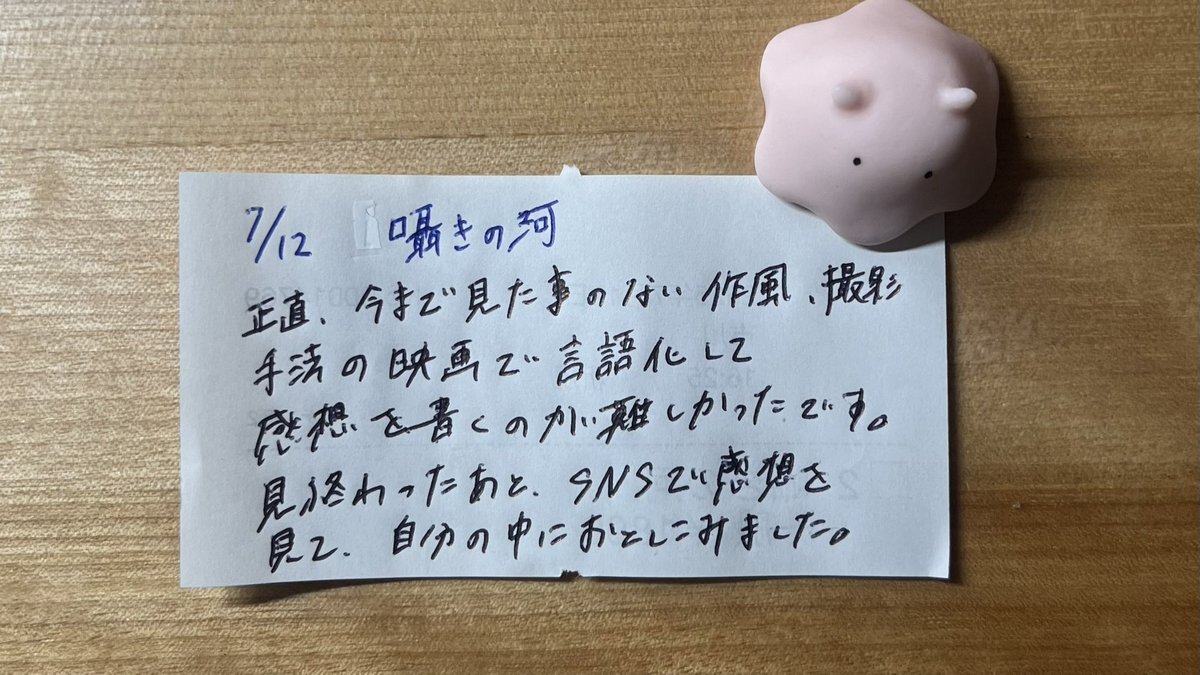 7/12 囁きの河
正直、今まで見た事のない作風、撮影
手法の映画で言語化して
感想を書くのが難しかったです。
見終わったあと、SNSで感想を
見て、自分の中におとしこみました。